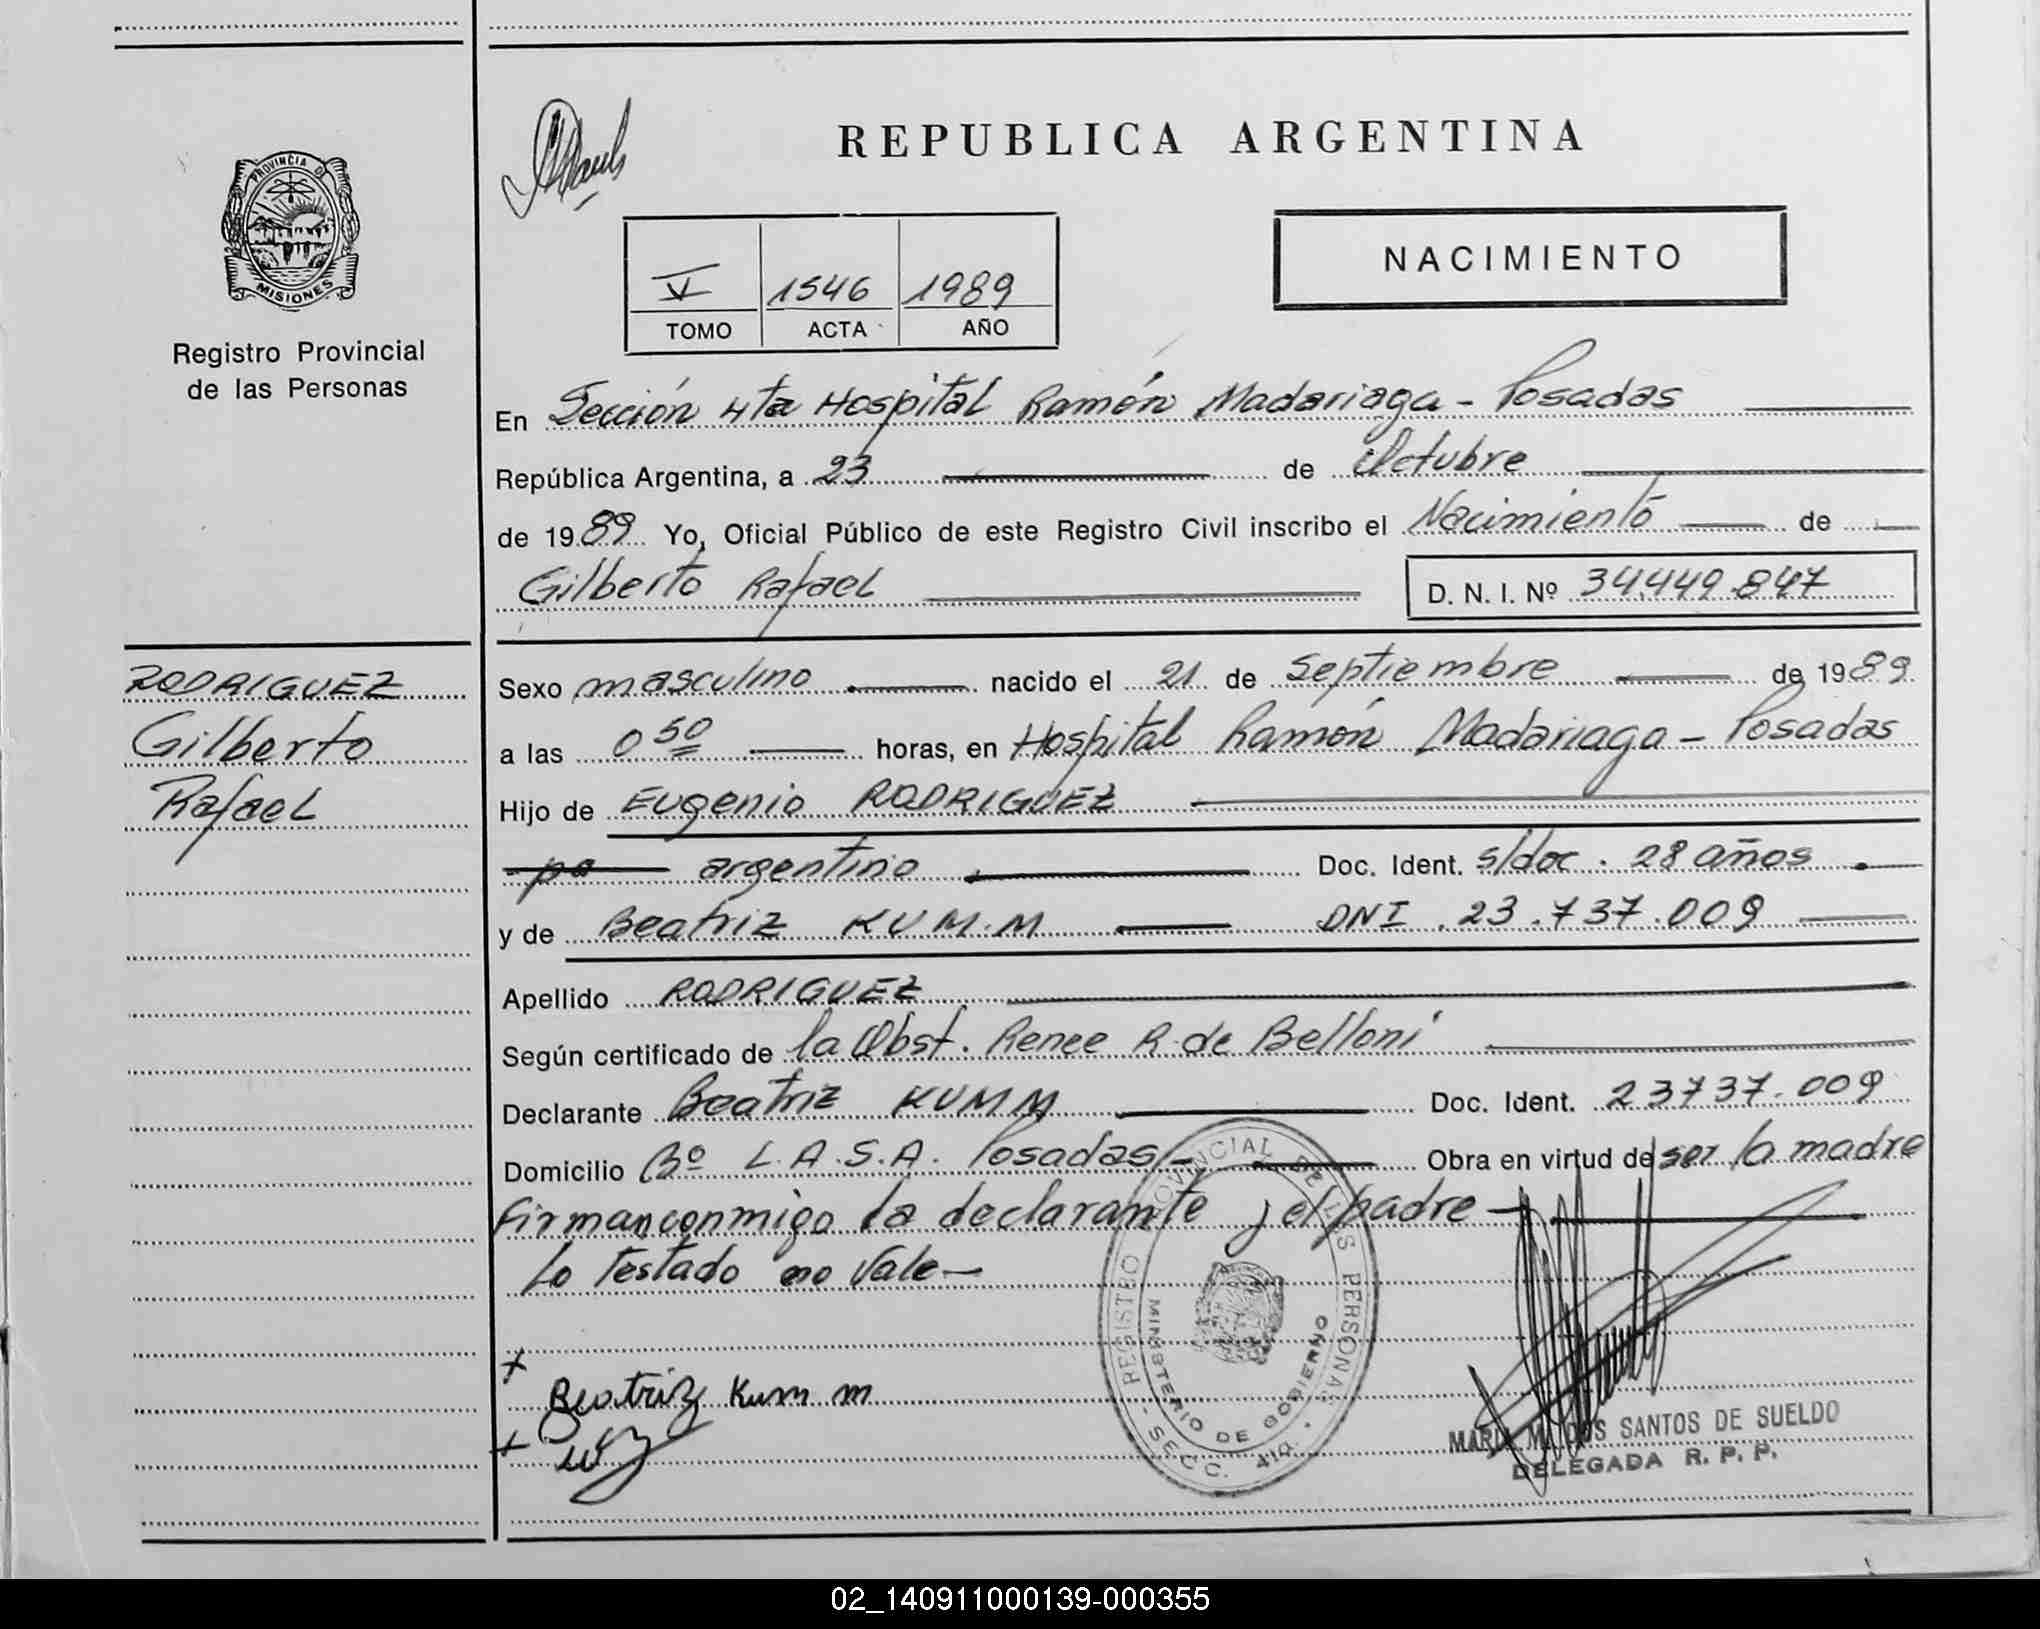 REPUBLICA ARGENTINA
PROVINCIA D
MISIONES
Registro Provincial
de las Personas
V 1546 1989
TOMO ACTA AÑO
NACIMIENTO
En Sección 4ta Hospital Ramón Madariaga - Posadas
República Argentina, a 23 de Octubre
de 1989 Yo, Oficial Público de este Registro Civil inscribo el Nacimiento de
Gilberto Rafael D. N. I. Nº 34.449.847
RODRIGUEZ
Gilberto
Rafael
Sexo masculino nacido el 21 de Septiembre de 1989
a las 0 50 horas, en Hospital Ramón Madariaga - Posadas
Hijo de Eugenio RODRIGUEZ
pa argentino Doc. Ident. s/doc. 28 años
y de Beatriz KUMM DNI. 23.737.009
Apellido RODRIGUEZ
Según certificado de la Obst. Renee R. de Belloni
Declarante Beatriz KUMM Doc. Ident. 23737.009
Domicilio Bº L.A.S.A. Posadas - Obra en virtud de ser la madre
firman conmigo la declarante y el padre -
Lo testado no vale -
Beatriz Kumm
REGISTRO PROVINCIAL DE LAS PERSONAS
MINISTERIO DE GOBIERNO
- SECC. 4ta. -
SANTOS DE SUELDO
DELEGADA R. P. P.
02_140911000139-000355